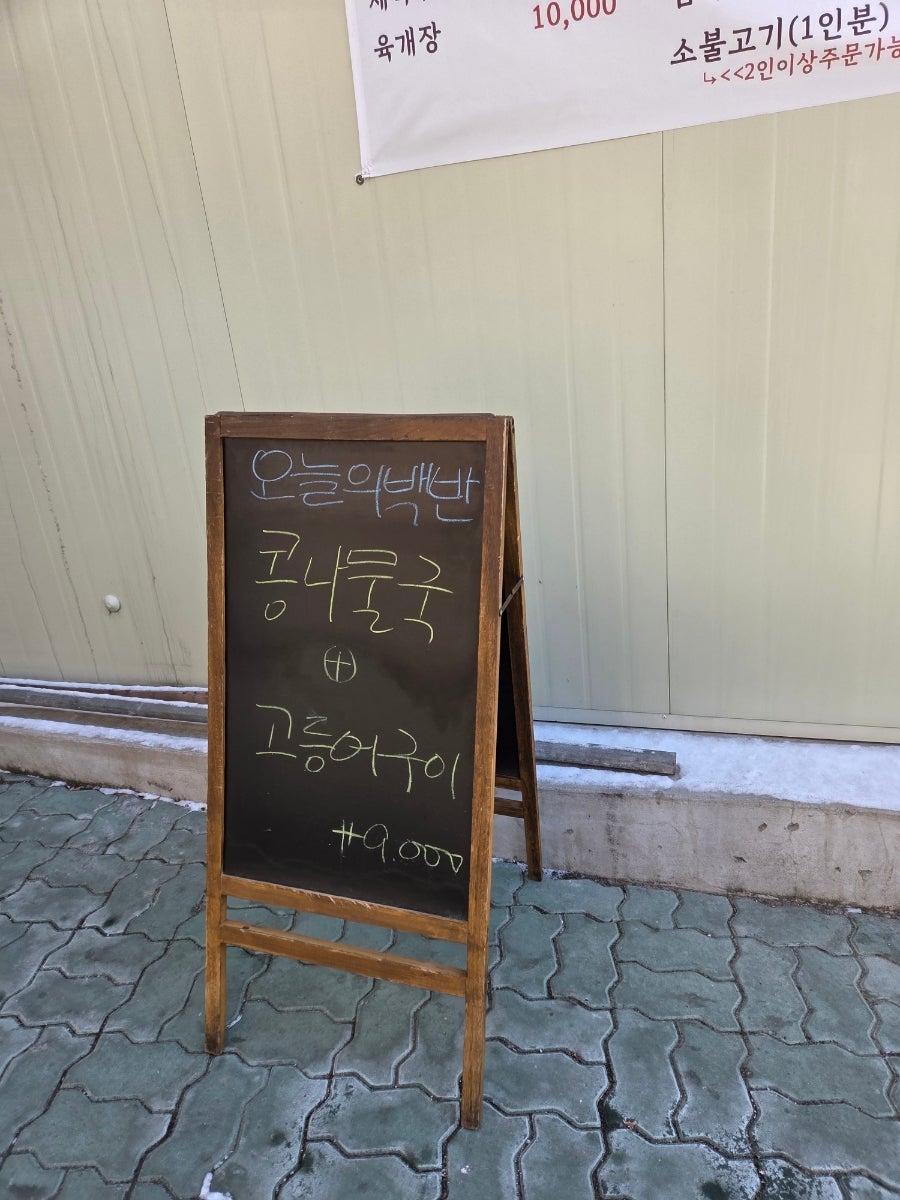 10,000
육개장
소불고기(1인분)
↳<<2인이상주문가능
오늘의백반
콩나물국
⊕
고등어구이
₩9.000